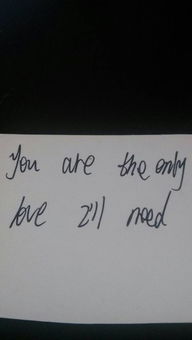 You are the only
love I'll need